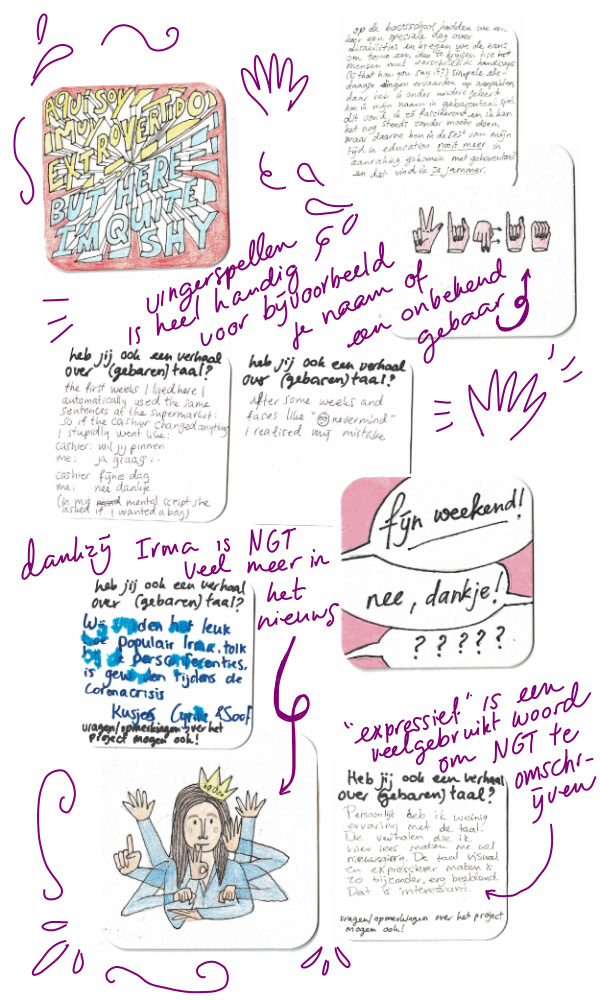 op de basisschool hadden we een
keer een speciale dag over
disabilities en kregen we de kans
om
mensen met verschillende handicaps
(is that how you say it?) simpele alle-
daagse dingen ervaarden en aanpakten
daar heb ik onder andere geleerd
hoe ik mijn naam in gebarentaal spel.
dit vond ik zó fascinerend en ik kan
het nog steeds zonder moeite doen,
maar daarna ben ik de rest van mijn
tijd in education nooit meer in
aanraking gekomen met gebarentaal
en dat vind ik zo jammer.
AQUÍ SOY
MUY
EXTROVERTIDO
BUT HERE
I'M QUITE
SHY
vingerspellen
is heel handig
voor bijvoorbeeld
je naam of
een onbekend
gebaar
heb jij ook een verhaal
over (gebaren)taal?
the first weeks I lived here I
automatically used the same
sentences at the supermarket:
so if the cashier changed anything
I stupidly went like:
cashier: wil jij pinnen
me: ja graag :.
cashier fijne dag
me: nee dankje
(in my mental script she
asked if I wanted a bag)
heb jij ook een verhaal
over (gebaren)taal?
after some weeks and
faces like "nevermind"
I realised my mistake
fijn weekend!
nee, dankje!
? ? ? ? ?
dankzij Irma is NGT
veel meer in
het
nieuws
heb jij ook een verhaal
over (gebaren)taal?
Wij vinden het leuk
hoe populair Irma, tolk
bij de persconferenties,
is geworden tijdens de
coronacrisis
Kusjes & Soof
vragen/opmerkingen over het
project mogen ook!
"expressief" is een
veelgebruikt woord
om NGT te
omschr-
ijven
Heb jij ook een verhaal
over (gebaren)taal?
Persoonlijk heb ik weinig
ervaring met de taal.
De verhalen die ik
hier lees maken me wel
nieuwsgierig. De taal visual
en expressiever maken is
zo bijzonder, erg beeldend.
Dat is interessant.
vragen/opmerkingen over het project
mogen ook!